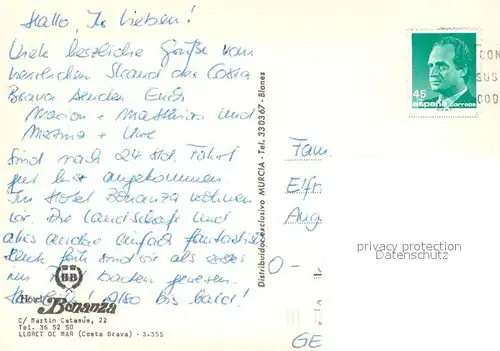 Hallo, Ihr Lieben!
Viele herzliche Grüße vom
herrlichen Strand der Costa
Brava senden Euch
Marion + Matthias und
Mama + Uwe
Sind nach 24 Std. Fahrt
gut hier angekommen.
Im Hotel Bonanza wohnen
wir. Die Landschaft und
alles andere einfach fantastisch
Heute früh sind wir als erstes
im baden gewesen.
also bis bald!
BB
Hotel Bonanza
C/ Martin Catasús, 22
Tel. 36 52 50
LLORET DE MAR (Costa Brava) - 3.355
Distribuidor exclusivo MURCIA - Tel. 330367 - Blanes
45
españa correos
CON
SUS
COD
Fam.
Elfr
Ange
O-
GE
privacy protection
Datenschutz